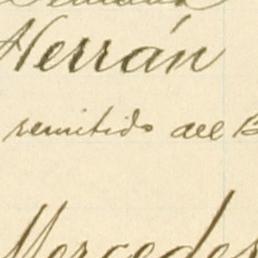 Herrán
remitido del B
Mercedes